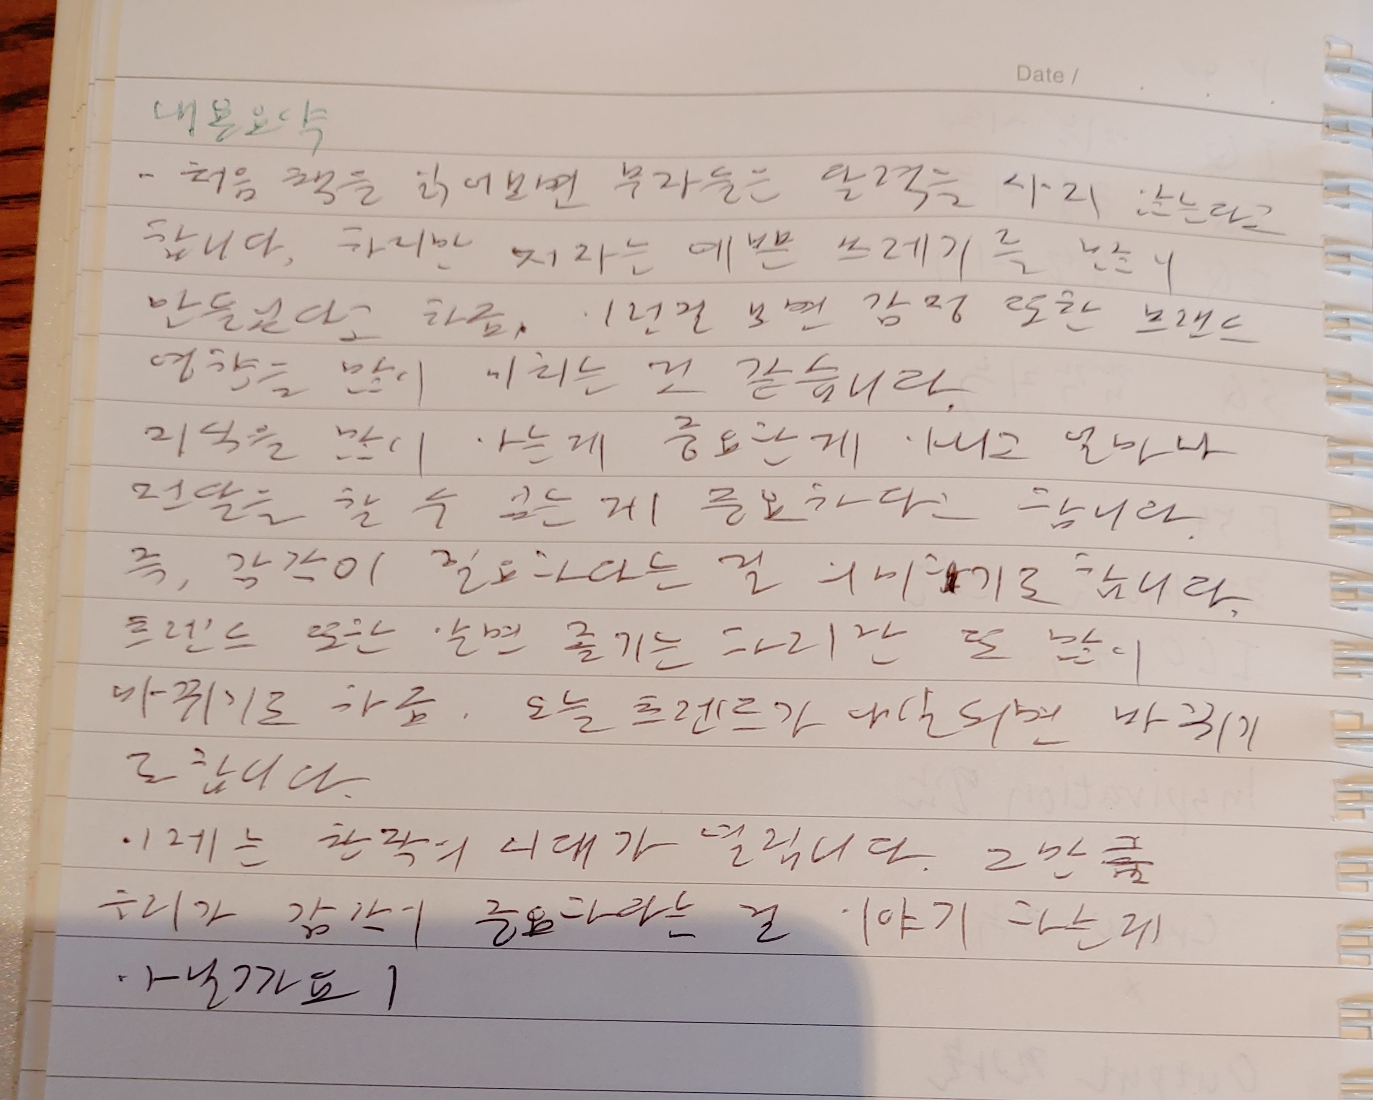 Date /
내용요약
- 처음 책을 읽어보면 부자들은 달력을 사지 않는다고
합니다. 하지만 저자는 예쁜 쓰레기를
만들었다고 하죠. 이런걸 보면 감정 또한 브랜드
영향을 많이 미치는 것 같습니다.
지식을 많이 아는게 중요한게 아니고 얼마나
전달을 할 수 있는 게 중요하다고 합니다.
즉, 감각이 필요하다는 걸 의미하기로 합니다.
트렌드 또한 알면 즐기는 하지만 또 많이
바뀌기도 하죠. 오늘 트렌드가 내일되면 바뀌기
도 합니다.
이제는 한 시대가 열립니다. 그만큼
우리가 감각이 중요하다는 걸 이야기 하는게
아닐까요!